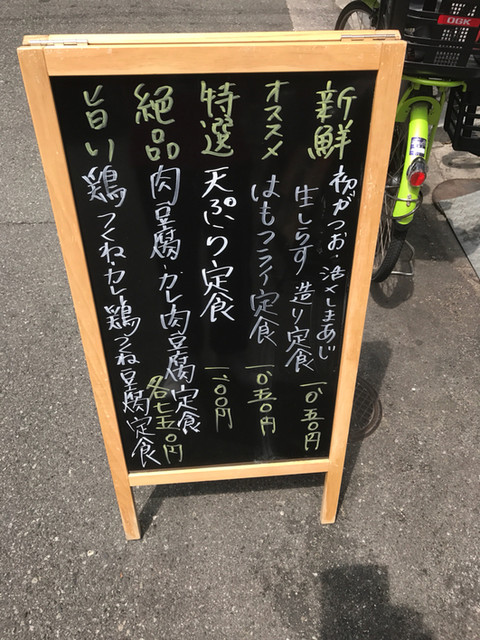 新鮮 初がつお・活〆しまあじ
生しらす 造り定食 一〇五〇円
オススメ はもフライ定食 一〇五〇円
特選 天ぷら定食 一一〇〇円
絶品 肉豆腐・カレー肉豆腐定食
旨い 鶏つくね・カレー鶏つくね豆腐定食
各七五〇円
OGK